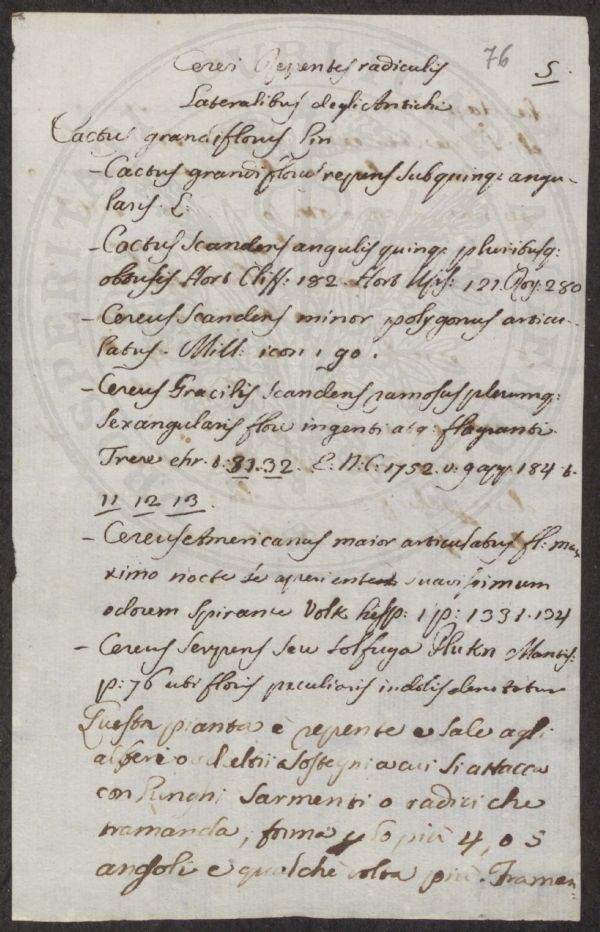 76
5
Cerei Repentes radiculis
Lateralibus degli Antichi
Cactus grandiflorus Lin
- Cactus grandiflorus repens subquinq: angu-
laris L:
- Cactus scandens angulis quinq: pluribusq:
obtusis Hort Cliff: 182. Hort Ups: 121. Roy: 280
- Cereus scandens minor polygonus articu-
latus. Mill: icon 90.
- Cereus Gracilis scandens ramosus plerumq:
sexangularis flore ingenti atq: flagranti.
Trew ehr. t: 31.32. E. N: C: 1752. v: 9 app. 184 t.
11 12 13.
- Cereus Americanus maior articulatus fl: ma
ximo nocte se aperiente suavissimum
odorem spirante Volk hesp: 1 p: 133 1. 134
- Cereus serpens seu solfuga Plukn Mantis:
p: 76 ubi floris peculiaris indolis denotatur
Questa pianta è repente e sale agli
alberi o ad altri sostegni a cui si attacca
con lunghi sarmenti o radici che
tramanda, forma lo più 4, o 5
angoli e qualche volta più. Traman